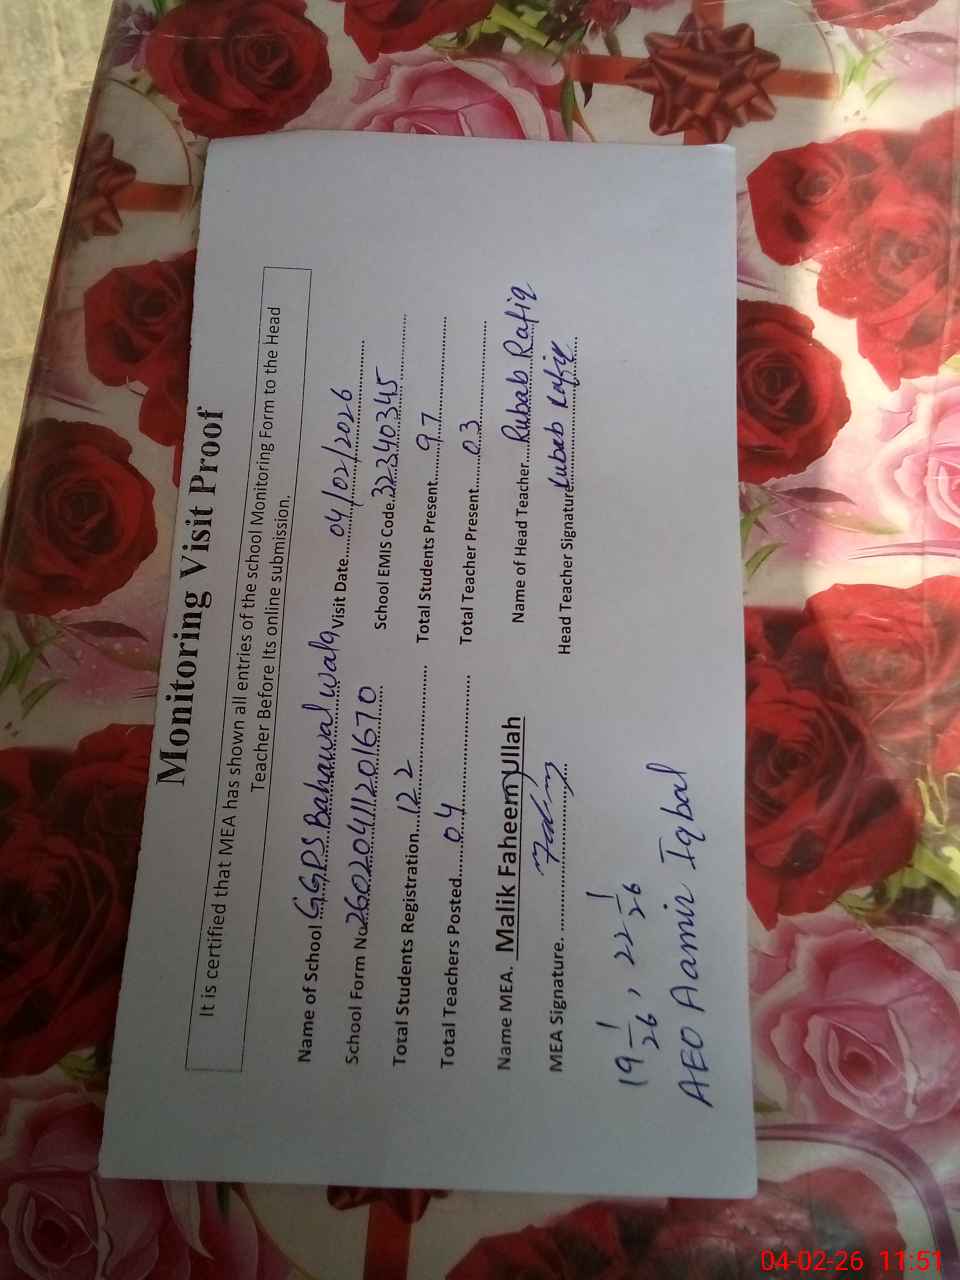 Monitoring Visit Proof
It is certified that MEA has shown all entries of the school Monitoring Form to the Head
Teacher Before Its online submission.
Name of School GGPS Bahawal wala Visit Date 04/02/2026
School Form No. 26020411201670 School EMIS Code. 32340345
Total Students Registration 122 Total Students Present 97
Total Teachers Posted 04 Total Teacher Present 03
Name MEA. Malik Faheem Ullah Name of Head Teacher Rubab Rafiq
MEA Signature. Head Teacher Signature Rubab Rafiq
19 1/26, 22 1/26
AEO Aamir Iqbal
04-02-26 11:51